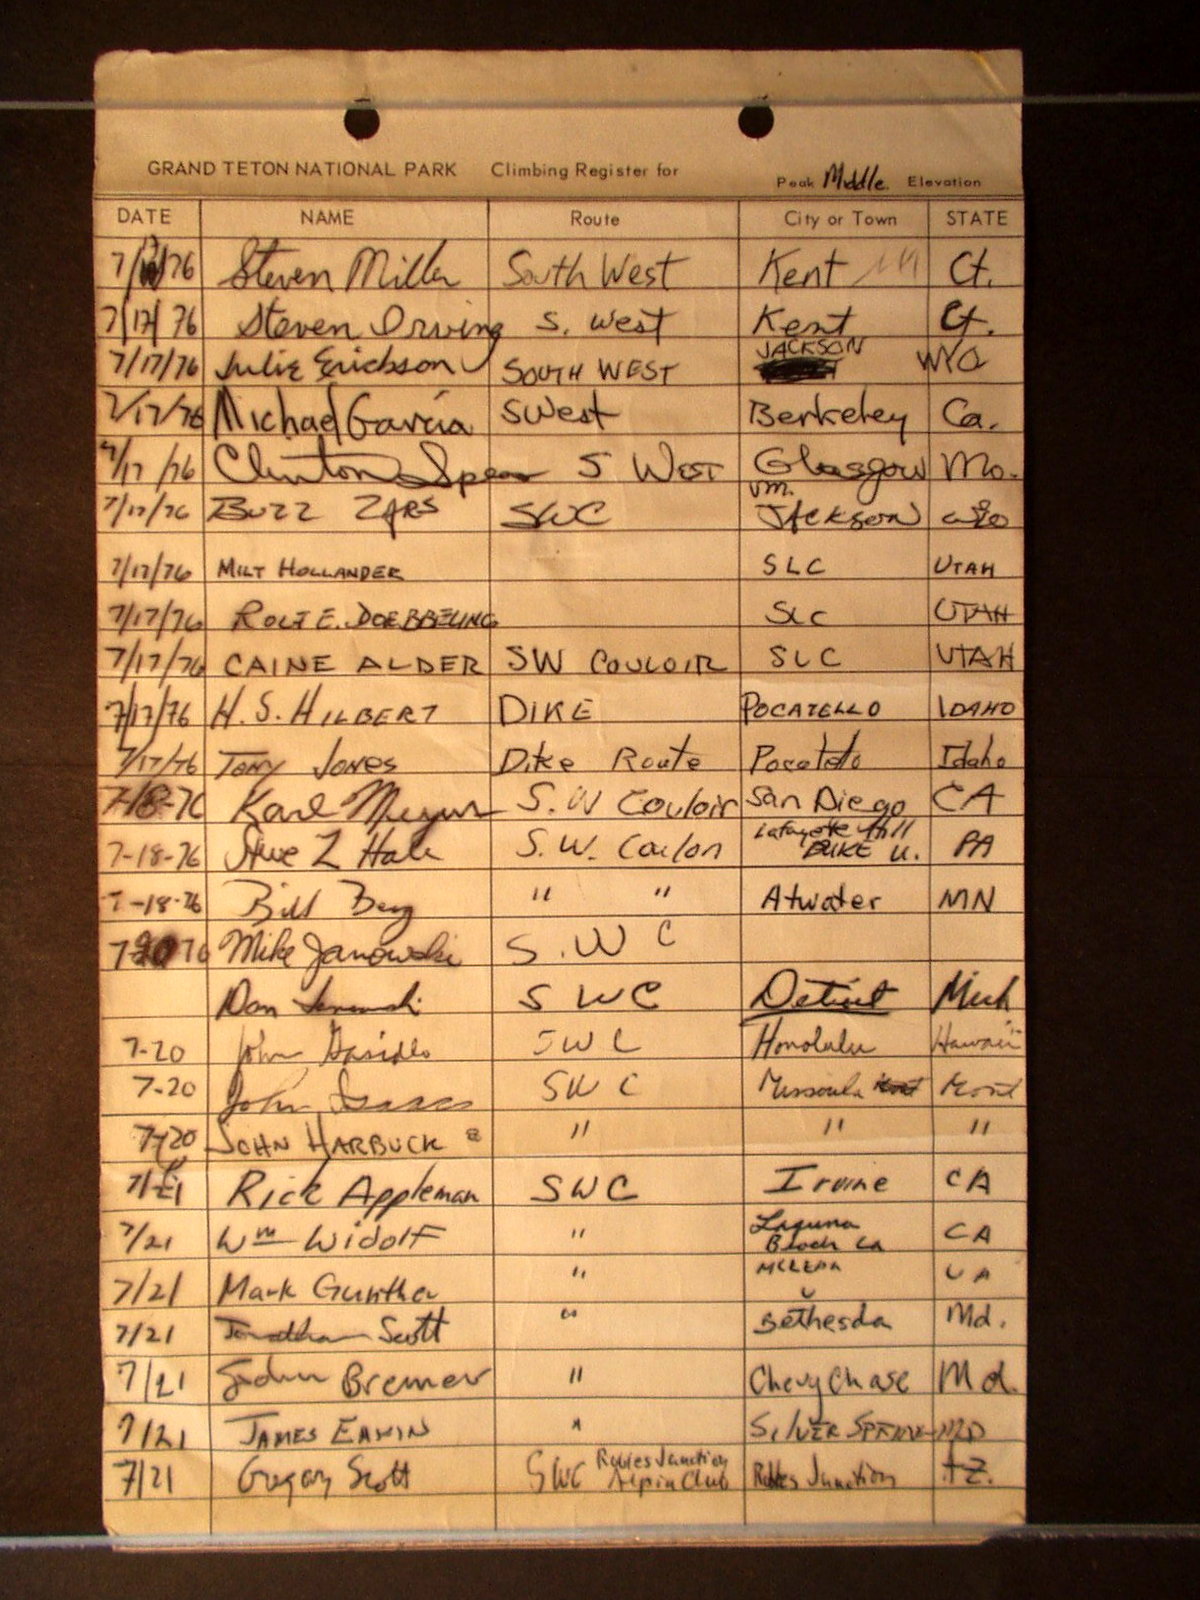 GRAND TETON NATIONAL PARK Climbing Register for Peak Middle Elevation
DATE NAME Route City or Town STATE
7/17/76 Steven Miller South West Kent Ct.
7/17/76 Steven Irving S. West Kent Ct.
7/17/76 Julie Erickson South West JACKSON WYO
7/17/76 Michael Garcia SWest Berkeley Ca.
7/17/76 Clinton Spear S West Glasgow Mo.
7/17/76 BUZZ ZARS SWC Jackson
7/17/76 MILT HOLLANDER SLC UTAH
7/17/76 ROLF E. DOEBBELING SLC UTAH
7/17/76 CAINE ALDER SW COULOIR SLC UTAH
7/17/76 H. S. HILBERT DIKE POCATELLO IDAHO
7/17/76 TONY JONES Dike Route Pocatello Idaho
7-18-76 Karl S.W Couloir San Diego CA
7-18-76 Hale S. W. Lafayette Hill DUKE U. PA
7-18-76 Bill Berg " " Atwater MN
7-20 76 Mike Janowski S.W C
Dan S W C Detroit Mich
7-20 John SWC Honolulu Hawaii
7-20 John Isaacs SWC Missoula Mont
7-20 JOHN HARBUCK " " "
7/21 Rick Appleman SWC Irvine CA
7/21 Wm Widolf " Laguna Beach Ca CA
7/21 Mark Gunther " MCLEAN VA
7/21 Jonathan Scott " Bethesda Md.
7/21 Bremer " Chevy Chase Md.
7/21 JAMES " SILVER SPRING MD
7/21 Gregory Scott SWC Robles Junction Alpine Club Robles Junction AZ.